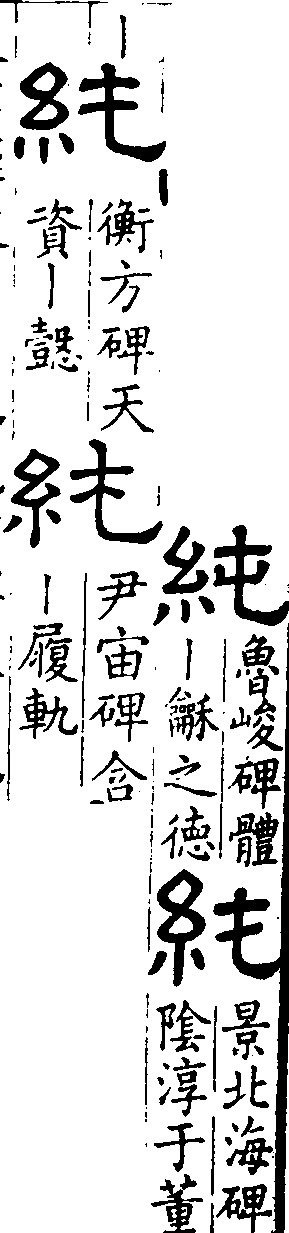 純
魯峻碑體
丨龢之德
純
景北海碑
陰淳于董
丨
純
衡方碑天
資丨懿
純
尹宙碑含
丨履軌